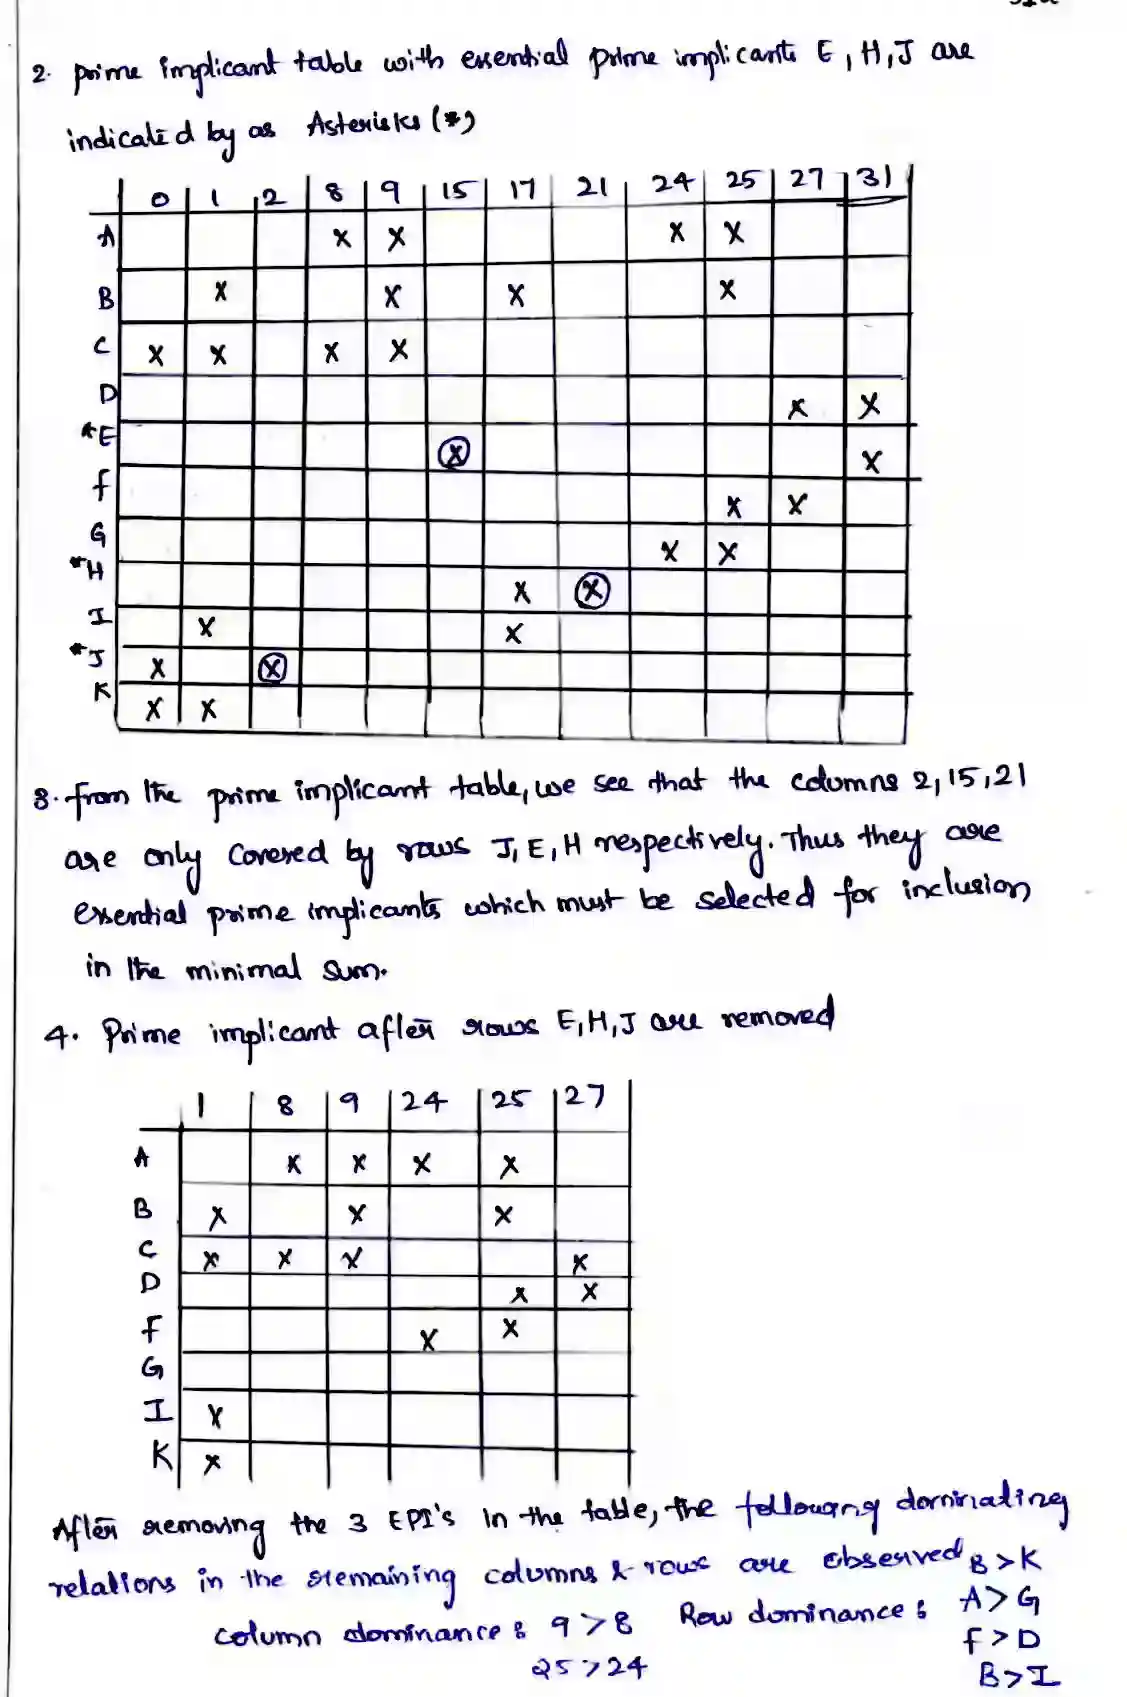 2. prime implicant table with essential prime implicants E, H, J are
indicated by as Asterisks (*)
0 1 2 8 9 15 17 21 24 25 27 31
A X X X X
B X X X X
C X X X X
D X X
*E X X
F X X
G X X
*H X X
I X X
*J X X
K X X
3. From the prime implicant table, we see that the columns 2, 15, 21
are only Covered by rows J, E, H respectively. Thus they are
essential prime implicants which must be selected for inclusion
in the minimal sum.
4. Prime implicant after rows E, H, J are removed
1 8 9 24 25 27
A X X X X
B X X X
C X X X X
D X X
F X X
G
I X
K X
After removing the 3 EPI's in the table, the following dominating
relations in the remaining columns & rows are observed
column dominance : 9 > 8 Row dominance : B > K
25 > 24 A > G
F > D
B > I